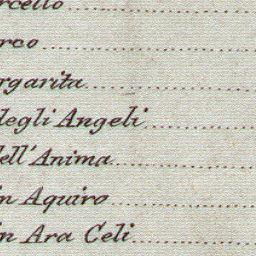 rcello
rco
rgarita
degli Angeli
dell'Anima
in Aquiro
in Ara Celi